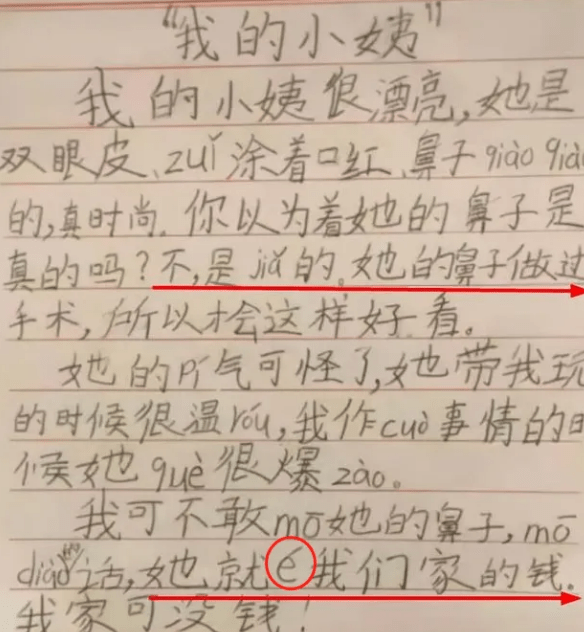 “我的小姨”
我的小姨很漂亮,她是
双眼皮、zuǐ涂着口红、鼻子qiào qiào
的,真时尚.你以为着她的鼻子是
真的吗?不,是jiǎ的.她的鼻子做过
手术,所以才会这样好看。
她的pí气可怪了,她带我玩
的时候很温róu,我作cuò事情的时
候她què很爆zào。
我可不敢mō她的鼻子,mō
diào的话,她就é我们家的钱.
我家可没钱!